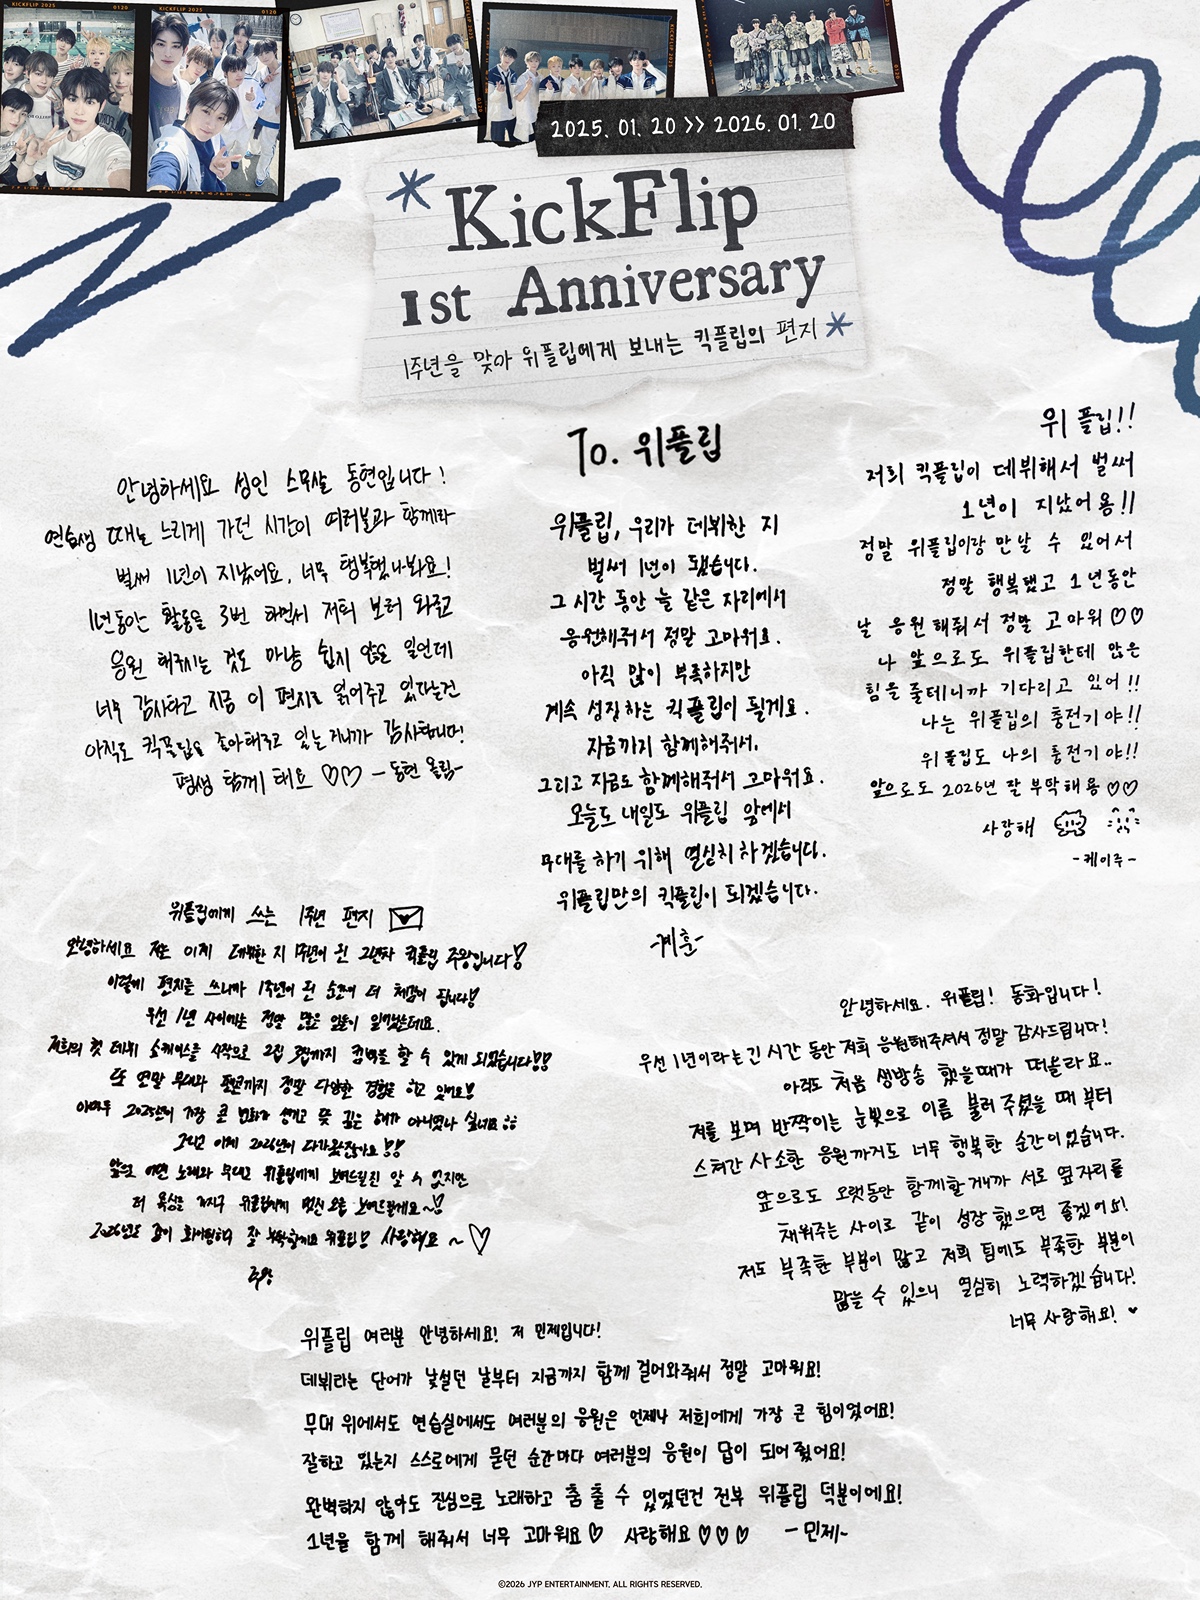 KICKFLIP 2025
0120
KICKFLIP 2025
0120
2025. 01. 20 >> 2026. 01. 20
KickFlip
1st Anniversary
1주년을 맞아 위플립에게 보내는 킥플립의 편지
To. 위플립
안녕하세요 성인 스무살 동현입니다!
연습생 때는 느리게 가던 시간이 여러분과 함께라
벌써 1년이 지났어요, 너무 행복했나봐요!
1년동안 활동을 3번 하면서 저희 보러 와주고
응원 해주시는 것도 마냥 쉽지 않은 일인데
너무 감사하고 지금 이 편지도 읽어주고 있다는건
아직도 킥플립을 좋아해주고 있는거니까 감사합니다!
평생 함께 해요 ♡♡ -동현 올림-
위플립, 우리가 데뷔한 지
벌써 1년이 됐습니다.
그 시간 동안 늘 같은 자리에서
응원해줘서 정말 고마워요.
아직 많이 부족하지만
계속 성장하는 킥플립이 될게요.
지금까지 함께해줘서,
그리고 지금도 함께해줘서 고마워요.
오늘도 내일도 위플립 앞에서
무대를 하기 위해 열심히 하겠습니다.
위플립만의 킥플립이 되겠습니다.
-계훈-
위플립!!
저희 킥플립이 데뷔해서 벌써
1년이 지났어용!!
정말 위플립이랑 만날 수 있어서
정말 행복했고 1년동안
날 응원해줘서 정말 고마워♡♡
나 앞으로도 위플립한테 많은
힘을 줄테니까 기다리고 있어!!
나는 위플립의 충전기야!!
위플립도 나의 충전기야!!
앞으로도 2026년 잘 부탁해용♡♡
사랑해
-케이주-
위플립에게 쓰는 1주년 편지
안녕하세요 저는 이제 데뷔한 지 1주년이 된 2년차 킥플립 주왕입니다!
이렇게 편지를 쓰니까 1주년이 된 순간이 더 체감이 됩니다!
우선 1년 사이에는 정말 많은 일들이 있었는데요.
저희의 첫 데뷔 쇼케이스를 시작으로 2집 3집까지 컴백을 할 수 있게 되었습니다!!
또 연말 무대와 팬콘까지 정말 다양한 경험을 하고 있어요!
아마도 2025년이 가장 큰 변화가 생기고 뜻 깊은 해가 아니였나 싶네요
그리고 이제 2026년이 다가왔잖아요!!
앞으로 어떤 노래와 무대로 위플립에게 보여드릴진 알 수 없지만
더 욕심을 가지구 위플립에게 멋진 모습 보여드릴게요~!
2026년도 같이 화이팅하며 잘 부탁할게요 위플립! 사랑해요 ~ ♡
주왕
안녕하세요. 위플립! 동화입니다!
우선 1년이라는 긴 시간 동안 저희 응원해주셔서 정말 감사드립니다!
아직도 처음 생방송 했을때가 떠올라요..
저를 보며 반짝이는 눈빛으로 이름 불러 주셨을 때 부터
스쳐간 사소한 응원까지도 너무 행복한 순간이었습니다.
앞으로도 오랫동안 함께할거니까 서로 옆자리를
채워주는 사이로 같이 성장했으면 좋겠어요!
저도 부족한 부분이 많고 저희 팀에도 부족한 부분이
많을 수 있으니 열심히 노력하겠습니다!
너무 사랑해요! ♥
위플립 여러분 안녕하세요! 저 민제입니다!
데뷔라는 단어가 낯설던 날부터 지금까지 함께 걸어와줘서 정말 고마워요!
무대 위에서도 연습실에서도 여러분의 응원은 언제나 저희에게 가장 큰 힘이었어요!
잘하고 있는지 스스로에게 묻던 순간마다 여러분의 응원이 답이 되어줬어요!
완벽하지 않아도 진심으로 노래하고 춤 출 수 있었던건 전부 위플립 덕분이에요!
1년을 함께 해줘서 너무 고마워요♡ 사랑해요♡♡♡ -민제-
©2026 JYP ENTERTAINMENT. ALL RIGHTS RESERVED.